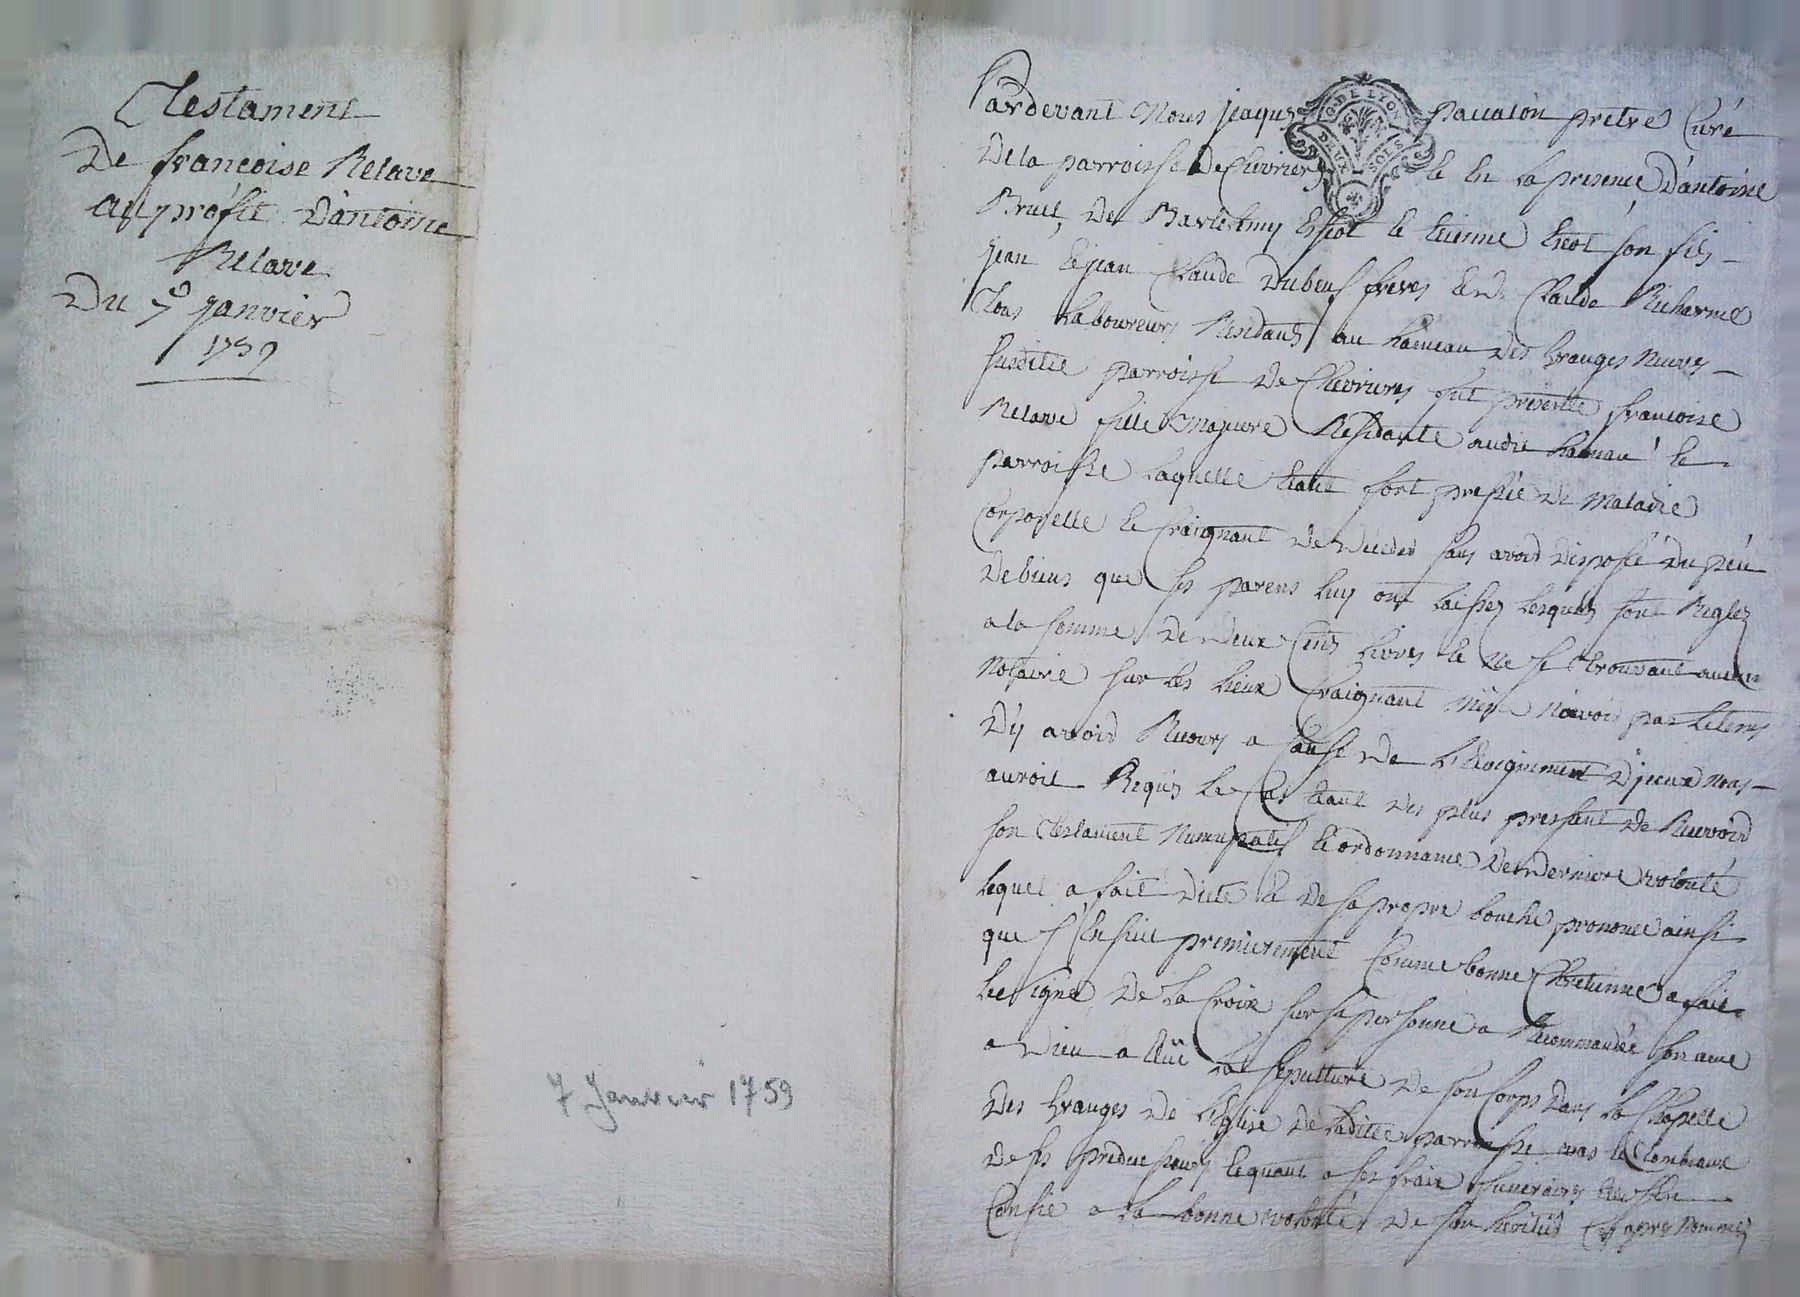 Testament
De francoise Relave
au profit D'antoine
Relave
Du 7e janvier
1759
7 Janvier 1759
G. DE LYON
DEUX SOLS
Pardevant Nous jaques paualon pretre Curé
De la parroisse De Chevrieres & en la presence D'antoine
Bruel, De Bartelemy & etienne son fils
jean & jean Claude Dubeuf freres & De Claude Richarme
Tous Laboureurs Residants au hameau Des Granges Neuves
susditte parroisse De Chevrieres fut presente francoise
Relave fille Majeure Residante audit hameau &
parroisse Laquelle etant fort pressée De Maladie
Corporelle & Craignant De Deceder sans avoir disposé Du peu
De biens que ses parens luy ont laissez lesquels sont Reglez
a la somme De Deux Cents Livres & Ne se trouvant aucun
Notaire sur les lieux Craignant N'avoir pas le tems
D'y avoir Recours a Cause De L'Eloignement D'jceux Nous
auroit Requis le Cas etant Des plus pressant De Recevoir
son Testament Nuncupatif & ordonnance De Derniere volonté
lequel a fait Dicté & De sa propre bouche prononcé ainsi
que s'Ensuit premierement Comme bonne Chretienne a fait
le signe De La Croix sur sa personne a Recommandée son ame
a Dieu a Elûe La sepulture De son Corps Dans la Chapelle
Des Granges De L'Eglise De laditte parroisse & Tombeaux
De ses predecesseurs & quant a ses frais funeraires
Confie a La bonne volonté De son heritier Cy apres Nommé